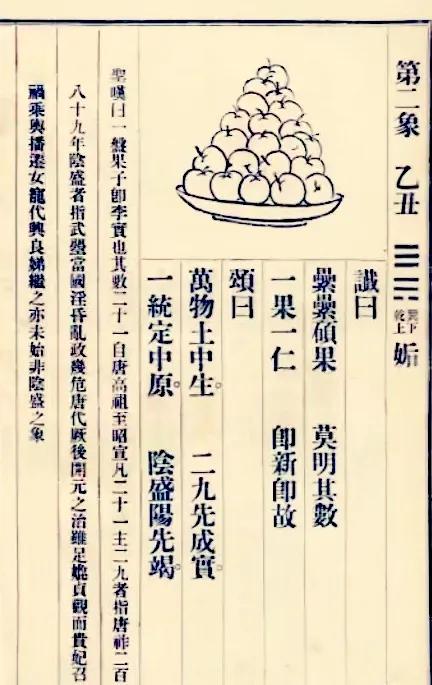 第二象 乙丑 巽下 乾上 姤
讖曰
纍纍碩果 莫明其數
一果一仁 即新即故
頌曰
萬物土中生。 二九先成實。
一統定中原。 陰盛陽先竭。
聖嘆曰一盤果子即李實也其數二十一自唐高祖至昭宣凡二十一主二九者指唐祚二百
八十九年陰盛者指武曌當國淫昏亂政幾危唐代厥後開元之治雖足媲貞觀而貴妃召
禍乘輿播遷女寵代興良娣繼之亦未始非陰盛之象